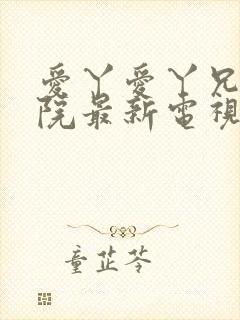 愛丫愛丫兄
院最新電視
童芷苓